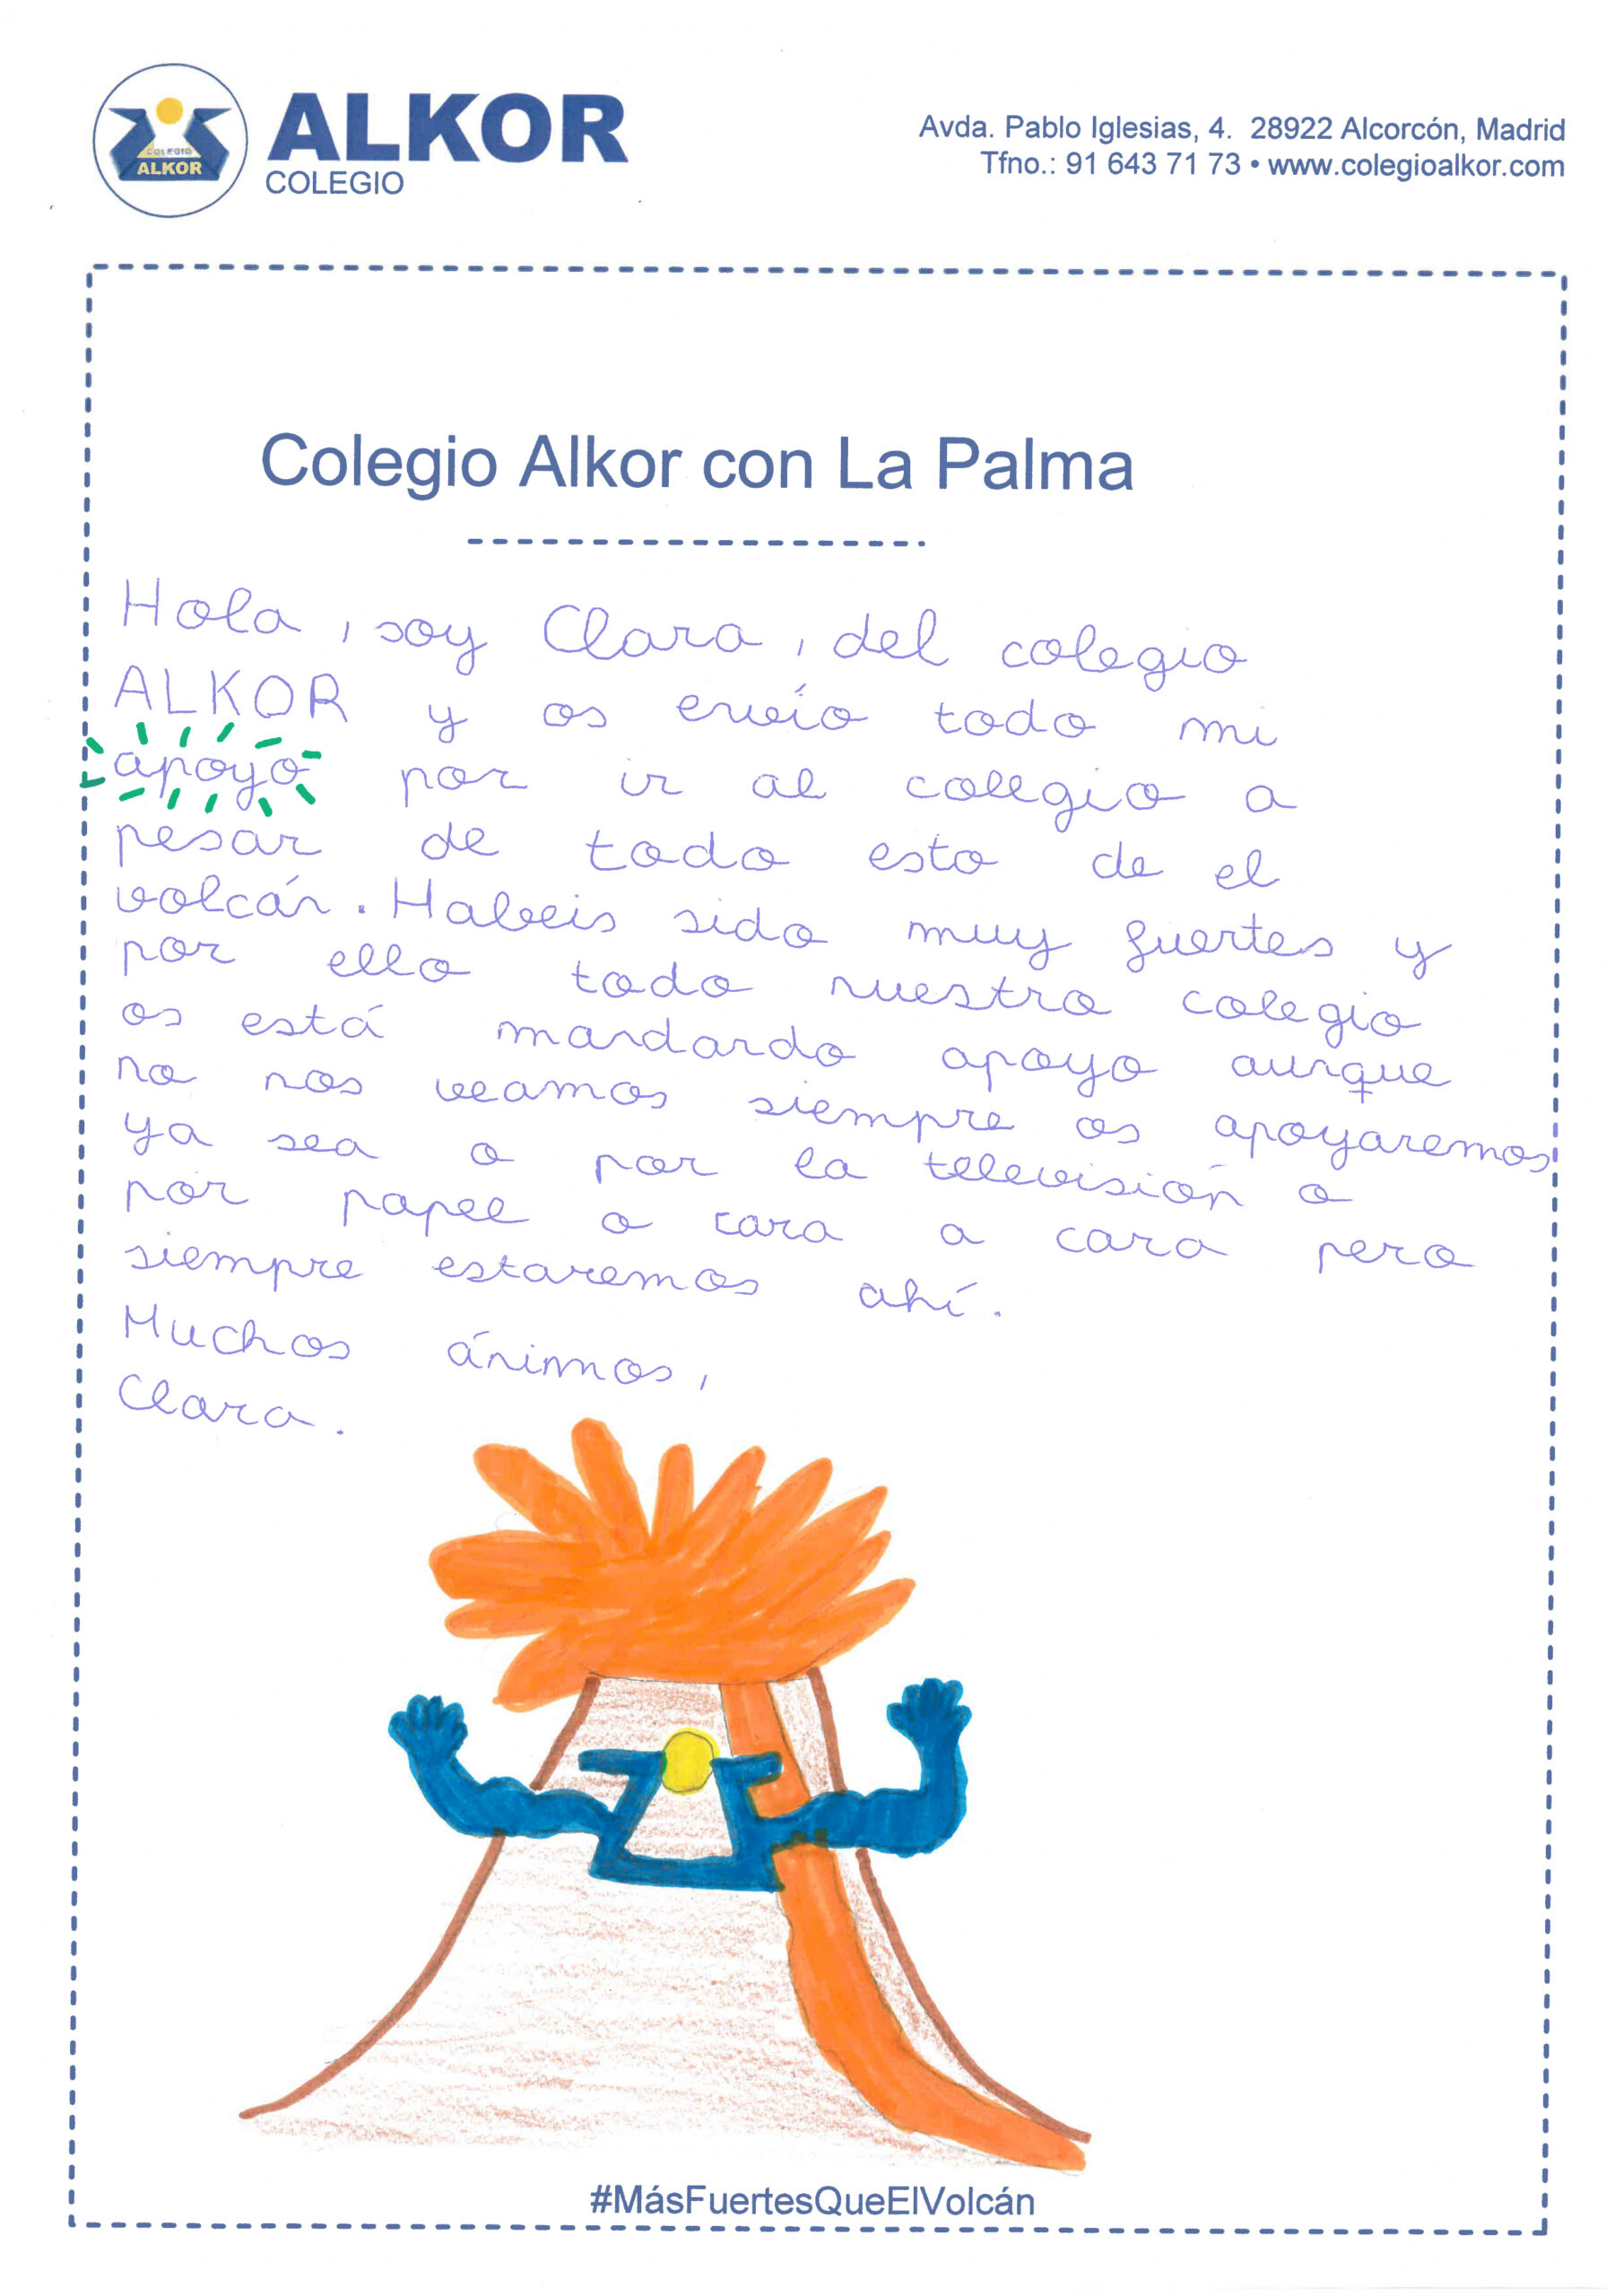 COLEGIO
ALKOR
ALKOR
COLEGIO
Avda. Pablo Iglesias, 4. 28922 Alcorcón, Madrid
Tfno.: 91 643 71 73 • www.colegioalkor.com
Colegio Alkor con La Palma
Hola, soy Clara, del colegio
ALKOR y os envío todo mi
apoyo por ir al colegio a
pesar de todo esto de el
volcán. Habeis sido muy fuertes y
por ello todo nuestro colegio
os está mandando apoyo aunque
no nos veamos siempre os apoyaremos
ya sea o por la televisión o
por papel o cara a cara pero
siempre estaremos ahí.
Muchos ánimos,
Clara.
#MásFuertesQueElVolcán